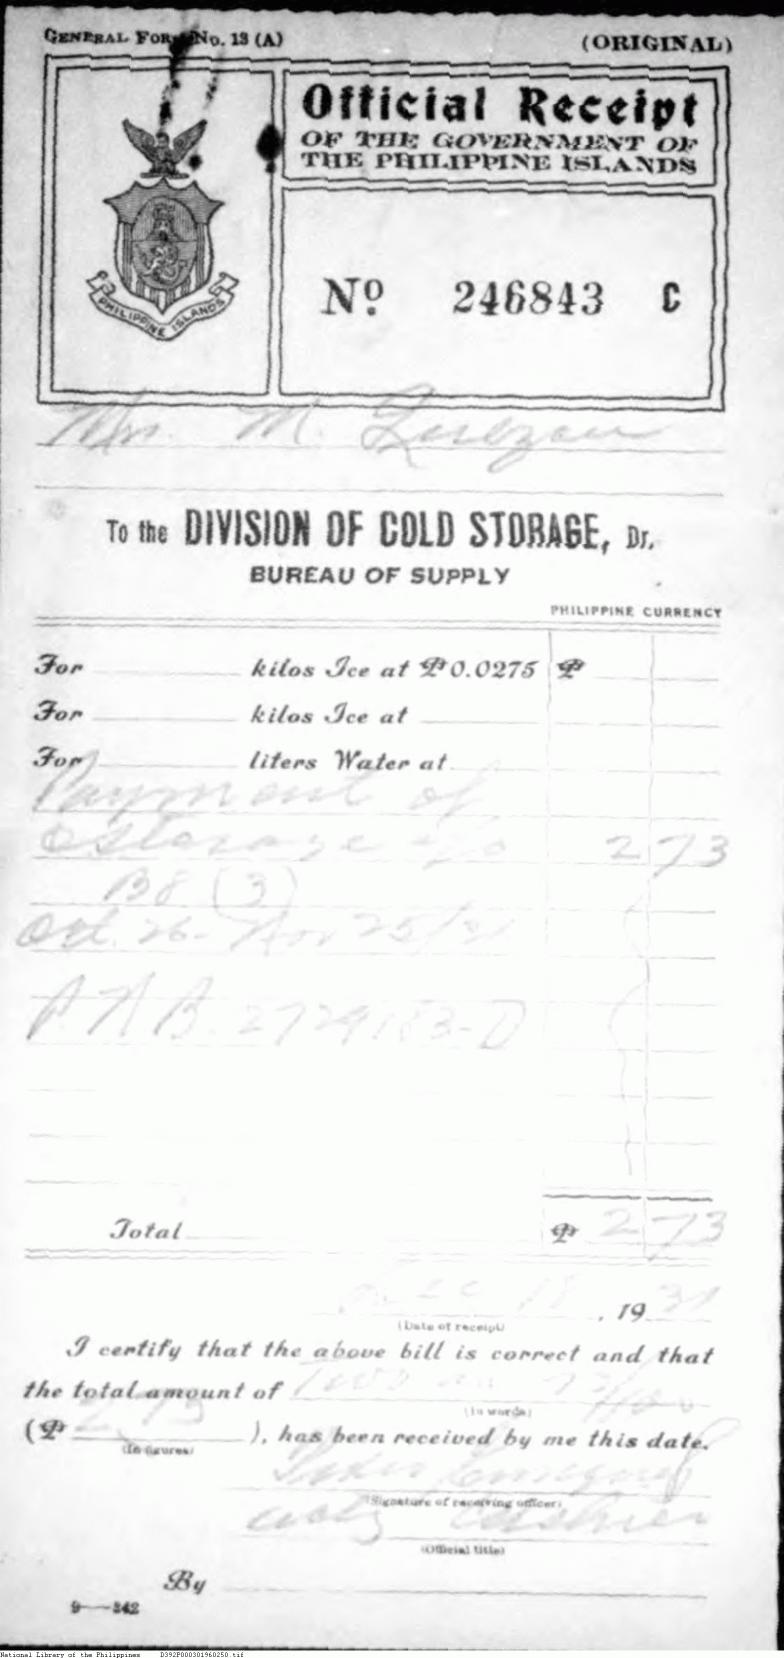 GENERAL FORM No. 13 (A)
(ORIGINAL)
Official Receipt
OF THE GOVERNMENT OF
THE PHILIPPINE ISLANDS
PHILIPPINE ISLANDS
No 246843 C
Mrs. M.
To the DIVISION OF COLD STORAGE, Dr.
BUREAU OF SUPPLY
PHILIPPINE CURRENCY
For kilos Ice at ₱0.0275 ₱
For kilos Ice at
For liters Water at
Payment of
storage 2 73
B8 (3)
Oct. 26 - Nov 25/31
P.N.B. 2729183-D
Total ₱ 2 73
Dec 18, 1931
(Date of receipt)
I certify that the above bill is correct and that
the total amount of Two and 73/100
(In words)
(₱ 2.73 ), has been received by me this date.
(In figures)
(Signature of receiving officer)
Cashier
(Official title)
By
9—342
National Library of the Philippines D392P000301960250.tif